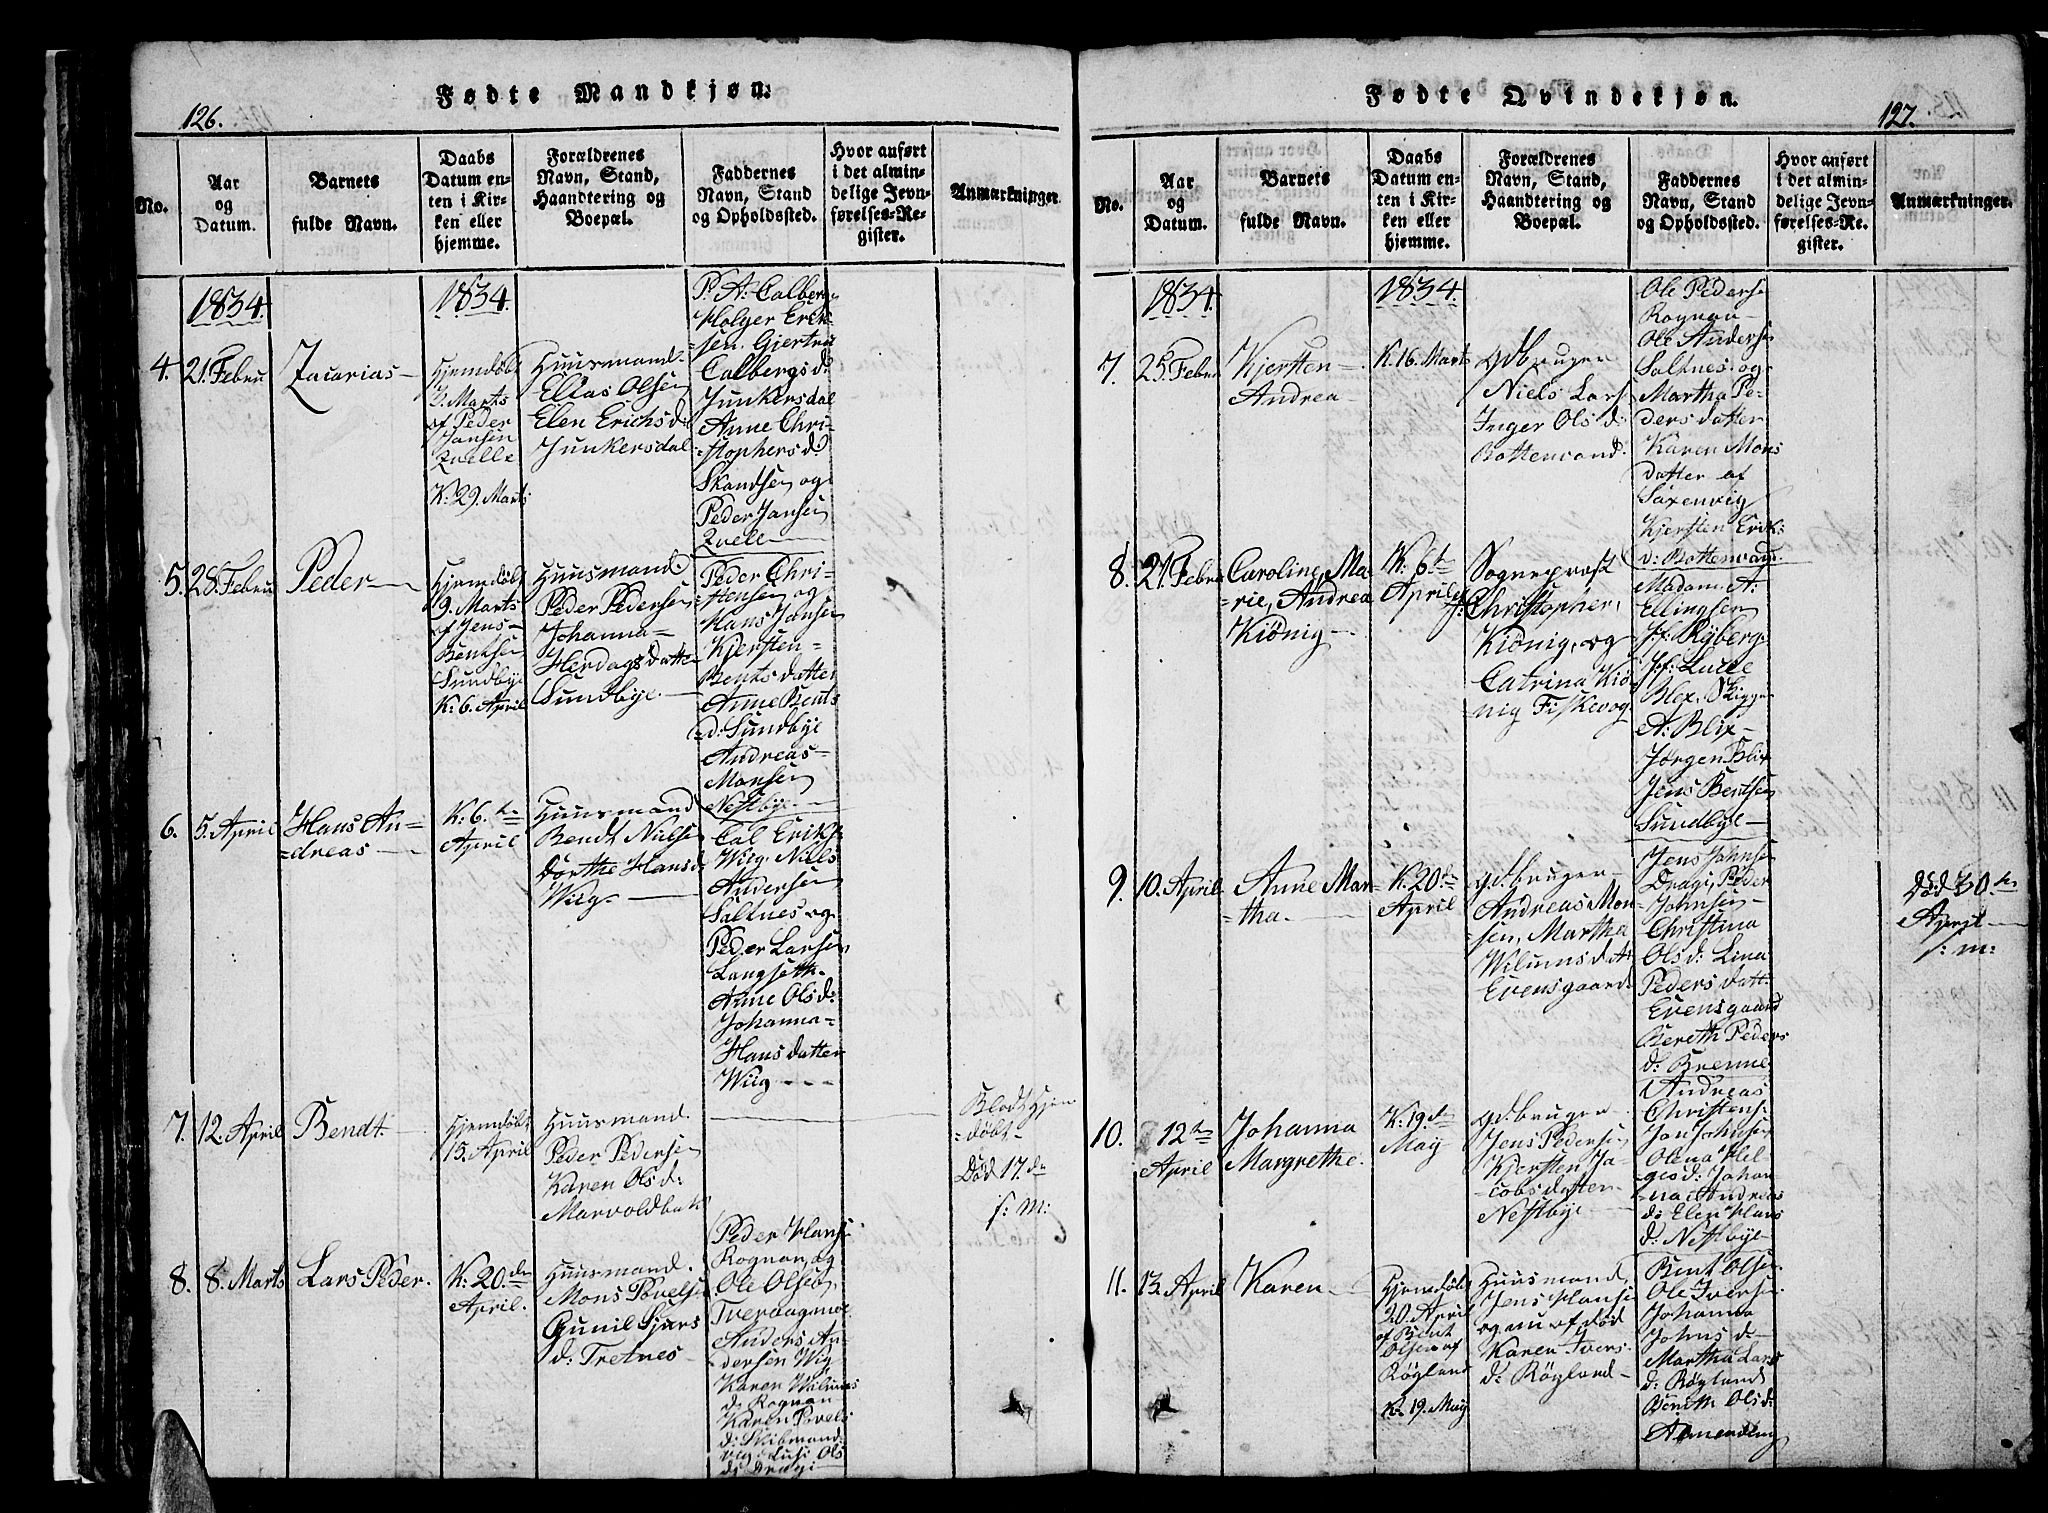 126.
Fødte Mandkjøn.
No.
Aar
og
Datum.
Barnets
fulde Navn.
Daabs
Datum en-
ten i Kir-
ken eller
hjemme.
Forældrenes
Navn, Stand,
Haandtering og
Boepæl.
Faddernes
Navn, Stand
og Opholdssted.
Hvor anført
i det almin-
delige Jevn-
førelses-Re-
gister.
Anmærkninger.
1834.
1834.
4.
21. Febru
Zacarias
Hjemdøbt
af Peder
Jansen
Qvelle
K: 29. Marts
Huusmand.
Elias Olsen
Elen Erichsd:
Junkersdal
P. A: Calberg
Holger Erik-
sen. Gjertru
Calbergs d:
Junkersdal
Anne Chri-
=stophersd:
Skandsen og
Peder Jansen
Qvell
5.
28. Febru
Peder
Hjemdøbt
9. Marts
af Jens
Bentsen
Sundbye
K: 6. April
Huusmand.
Peder Pedersen
Johanna
Herdags datter
Sundbye.
Peder Chri-
=stensen og
Hans Jansen
Kjersten
Bents datter
Anne Bents
d: Sundbye
Andreas
Monsen
Nestbye
6.
5. April
Hans An-
=dreas
K: 6. te
April
Huusmand
Bendt Nielse
Dorthe Hansd
Wiig.
Cal Eriks:
Wiig. Niels
Andersen
Saltnes og
Peder Larsen
Langseth.
Anne Olsd:
Johanna
Hans datter
Wiig
7.
12. April
Bendt.
Hjemdøbt
15. April
Huusmand.
Peder Pedersen
Karen Olsd:
Marvoldbak
Blodt Hjem
=døbt
Død 17. de
s: m:
8.
8. Marts
Lars Peder.
K: 20. de
April.
Huusmand.
Mons Povelse
Gunil Sjurs
d: Tretnes
Peder Hanse
Rognan, og
Ole Olsen
Tveraagmoe
Anders An-
dersen Wiig
Karen Wilums
d: Rognan
Karen Povels
d: Skibmand:
Olsd
127.
Fødte Qvindekjøn.
No.
Aar
og
Datum.
Barnets
fulde Navn.
Daabs
Datum en-
ten i Kir-
ken eller
hjemme.
Forældrenes
Navn, Stand,
Haandtering og
Boepæl.
Faddernes
Navn, Stand
og Opholdssted.
Hvor anført
i det almin-
delige Jevn-
førelses-Re-
gister.
Anmærkninger.
1834.
1834.
7.
25. Febru
Kjersten
Andrea
K. 16. Marts
gdbruger
Niels Lars
Inger Ols d:
Bottenvand.
Ole Peders
Rognan
Ole Anderse
Saltnes og
Martha Pe-
ders datter
Karen Mons
datter af
Saxenvig
Kjersten Erik:
d: Bottenvan
8.
21. Febru
Caroline, Ma-
=rie, Andrea
Kiønig
K: 6 te
April
Sognepræst
Christopher,
Kiönig, og
Catrina Kiö-
nig Fiskevog
Madam: A.
Ellingsen
Jf: Ryberg
Jf: Lucie
Blix,
A: Blix
Jørgen Blix
Jens Bentsen
Sundbye
9.
10. April
Anne Mar-
=tha.
K: 20 de
April
gd:bruger
Andreas Mon
sen, Martha
Wilumsdat
Evensgaard.
Jens Johnsen
Dragi, Peder
Johnsen
Christina
Olsd: Lina
Peders datt.
Evensgaard
Bereth Peders
d: Brenne
Död 30 te
April
s: m:
10.
12 te
April
Johanna
Margrethe.
K: 19. de
May
gd:bruger
Jens Pedersen
Kjersten Ja-
cobs datter
Nestbye
Andreas
Christens:
Jon Johnsen
Olena Hel
gesd: Johan-
na Andreas
d: Elen Hans
d: Nestbye
11.
13. April
Karen
Hjemdøbt
20. April
af Bent
Olsen af
Røgland
K: 19. May
Huusmand,
Jens Hanse
og nu af død
Karen Ivers
d: Røgland
Bent Olse
Ole Iverse
Johanna
Johns d
Martha Lars
d: Røgland
Bereth Ols d:
Almending